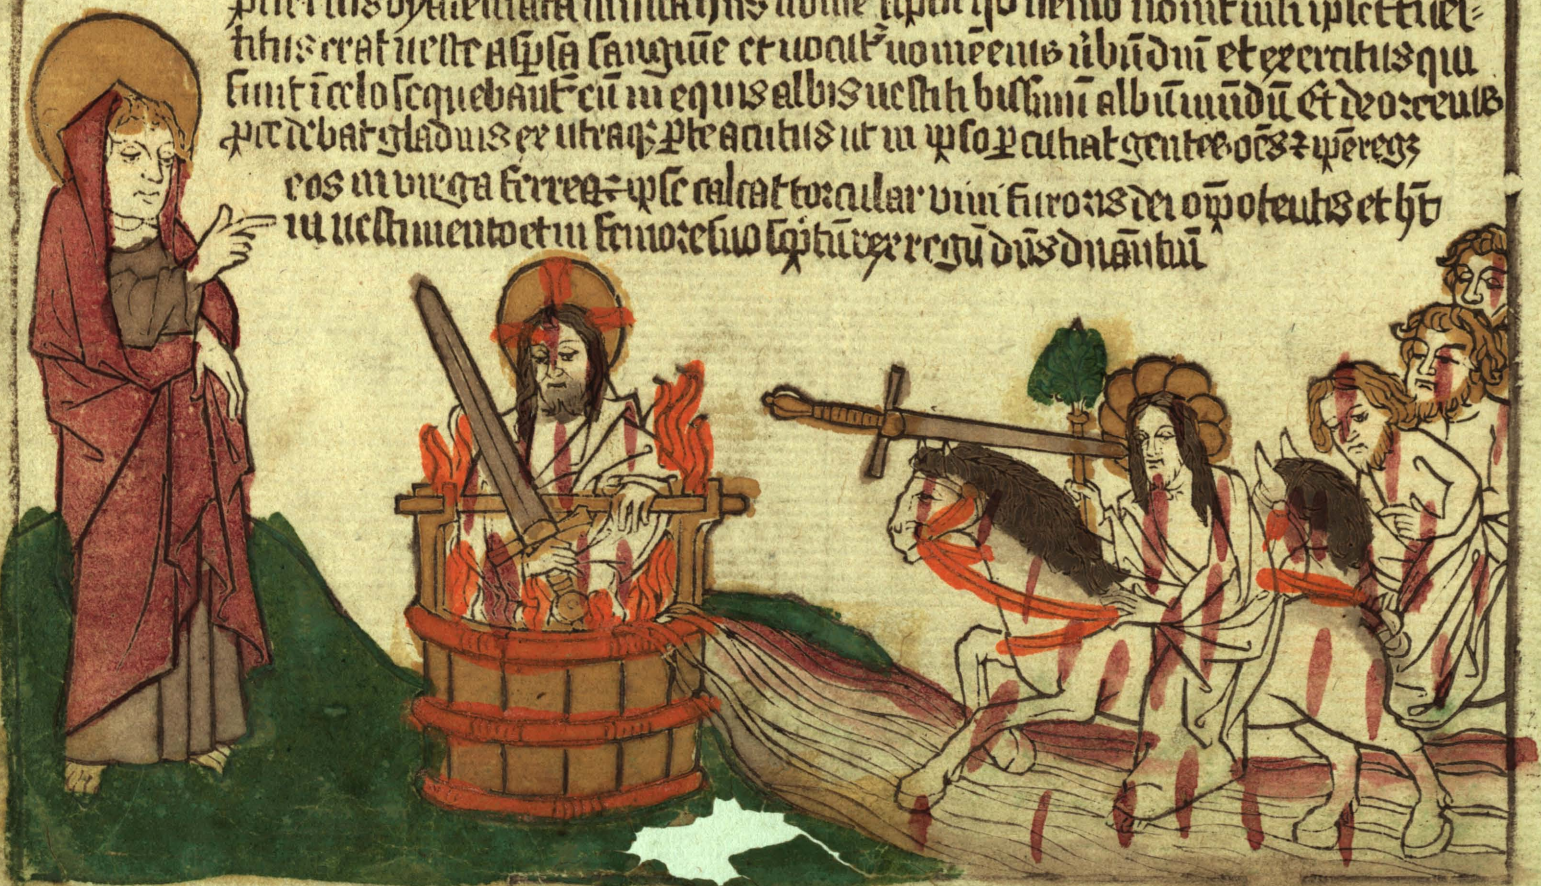 dyademata multa hn̄s nome sc̄ptū qd̄ nemo nouit nisi ipse et uesti=
titus erat ueste asp̄sa sanguīe et uocat᷑ nomē eius ūbū dn̄i et exercitus qui
sunt ī celo sequebant᷑ eū in equis albis uestiti bissinū albū mūdū Et de ore eius
p̄cedebat gladius ex utraqꝫ ꝑte acutus ut in ip̄so ꝑcutiat gentes oēs ⁊ ip̄e regꝫ
eos in virga ferrea ⁊ ip̄se calcat torcular vini furoris dei oīpotentis et hꝫ
in uestimento et in femore suo sc̄ptū rex regū dūs dnāntiū